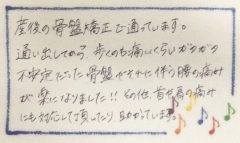 産後の骨盤矯正で通っています。
通い出してから、歩くのも痛いくらいガタガタ
不安定だった骨盤がそれに伴う腰の痛みが
が楽になりました!! その他、首や肩の痛み
にも対応して頂いたり、助かっています。